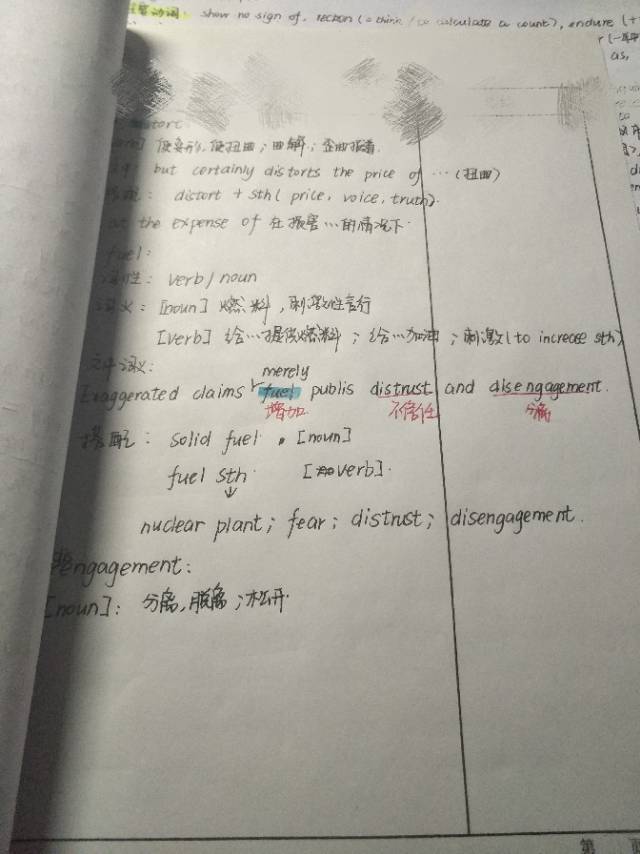 动词: show no sign of, reckon (= think / to calculate or count), endure (+
as,
distort:
使变形,使扭曲;曲解;歪曲报看
but certainly distorts the price of …(扭曲)
distort + sth( price, voice, truth).
at the expense of 在损害…的情况下.
fuel:
词性: verb/noun
词义: [noun] 燃料,刺激性言行
[verb] 给…提供燃料;给…加油;刺激(to increase sth)
文中词义:
merely
Exaggerated claims fuel publis distrust and disengagement.
增加 不信任 分离
搭配: solid fuel . [noun]
fuel sth [verb].
nuclear plant; fear; distrust; disengagement.
engagement:
[noun]: 分离,脱离;松开.
第 页